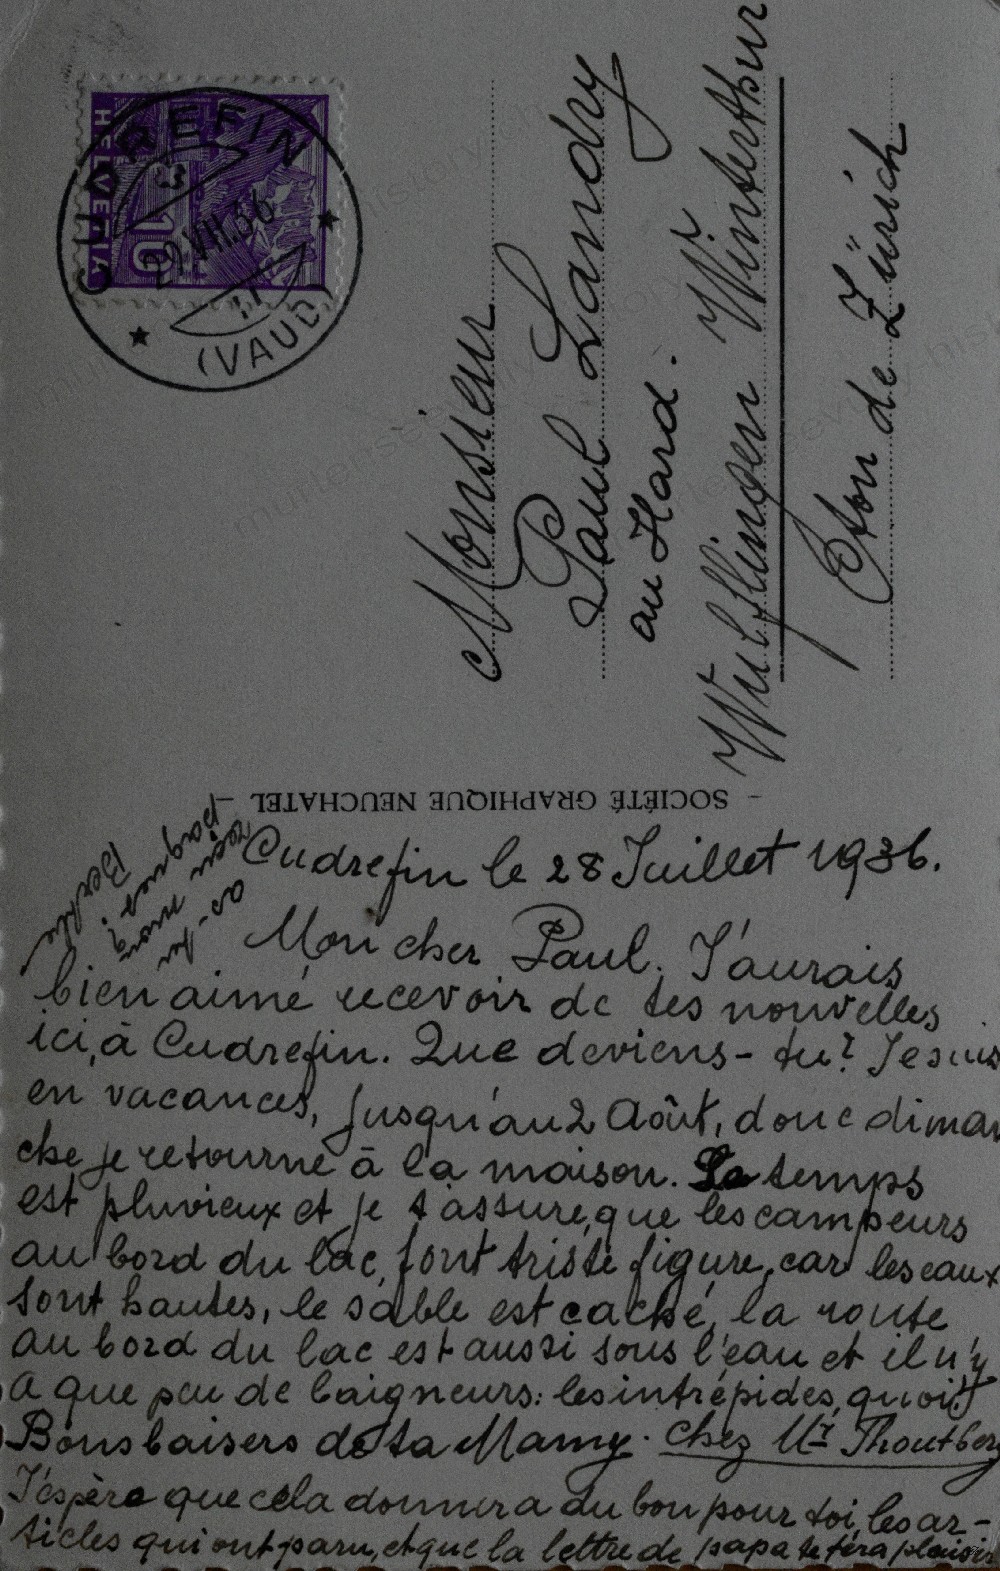 HELVETIA
10
CUDREFIN
29.VII.36
(VAUD)
Monsieur
Paul Landry
au Hard.
Wülflingen Winterthur
Cton de Zürich
- SOCIÉTÉ GRAPHIQUE NEUCHATEL -
Cudrefin le 28 Juillet 1936.
Mon cher Paul. J'aurais
bien aimé recevoir de tes nouvelles
ici, à Cudrefin. Que deviens-tu? Je suis
en vacances, jusqu'au 2 Août, donc diman
che je retourne à la maison. Le temps
est pluvieux et je t'assure, que les campeurs
au bord du lac, font triste figure, car les eaux
sont hautes, le sable est caché, la route
au bord du lac est aussi sous l'eau et il n'y
a que peu de baigneurs: les intrépides, quoi!
Bons baisers de ta Mamy. chez Mr
J'espère que cela donnera du bon pour toi, les ar-
ticles qui ont paru, et que la lettre de papa te fera plaisir
as-tu
reçu mon